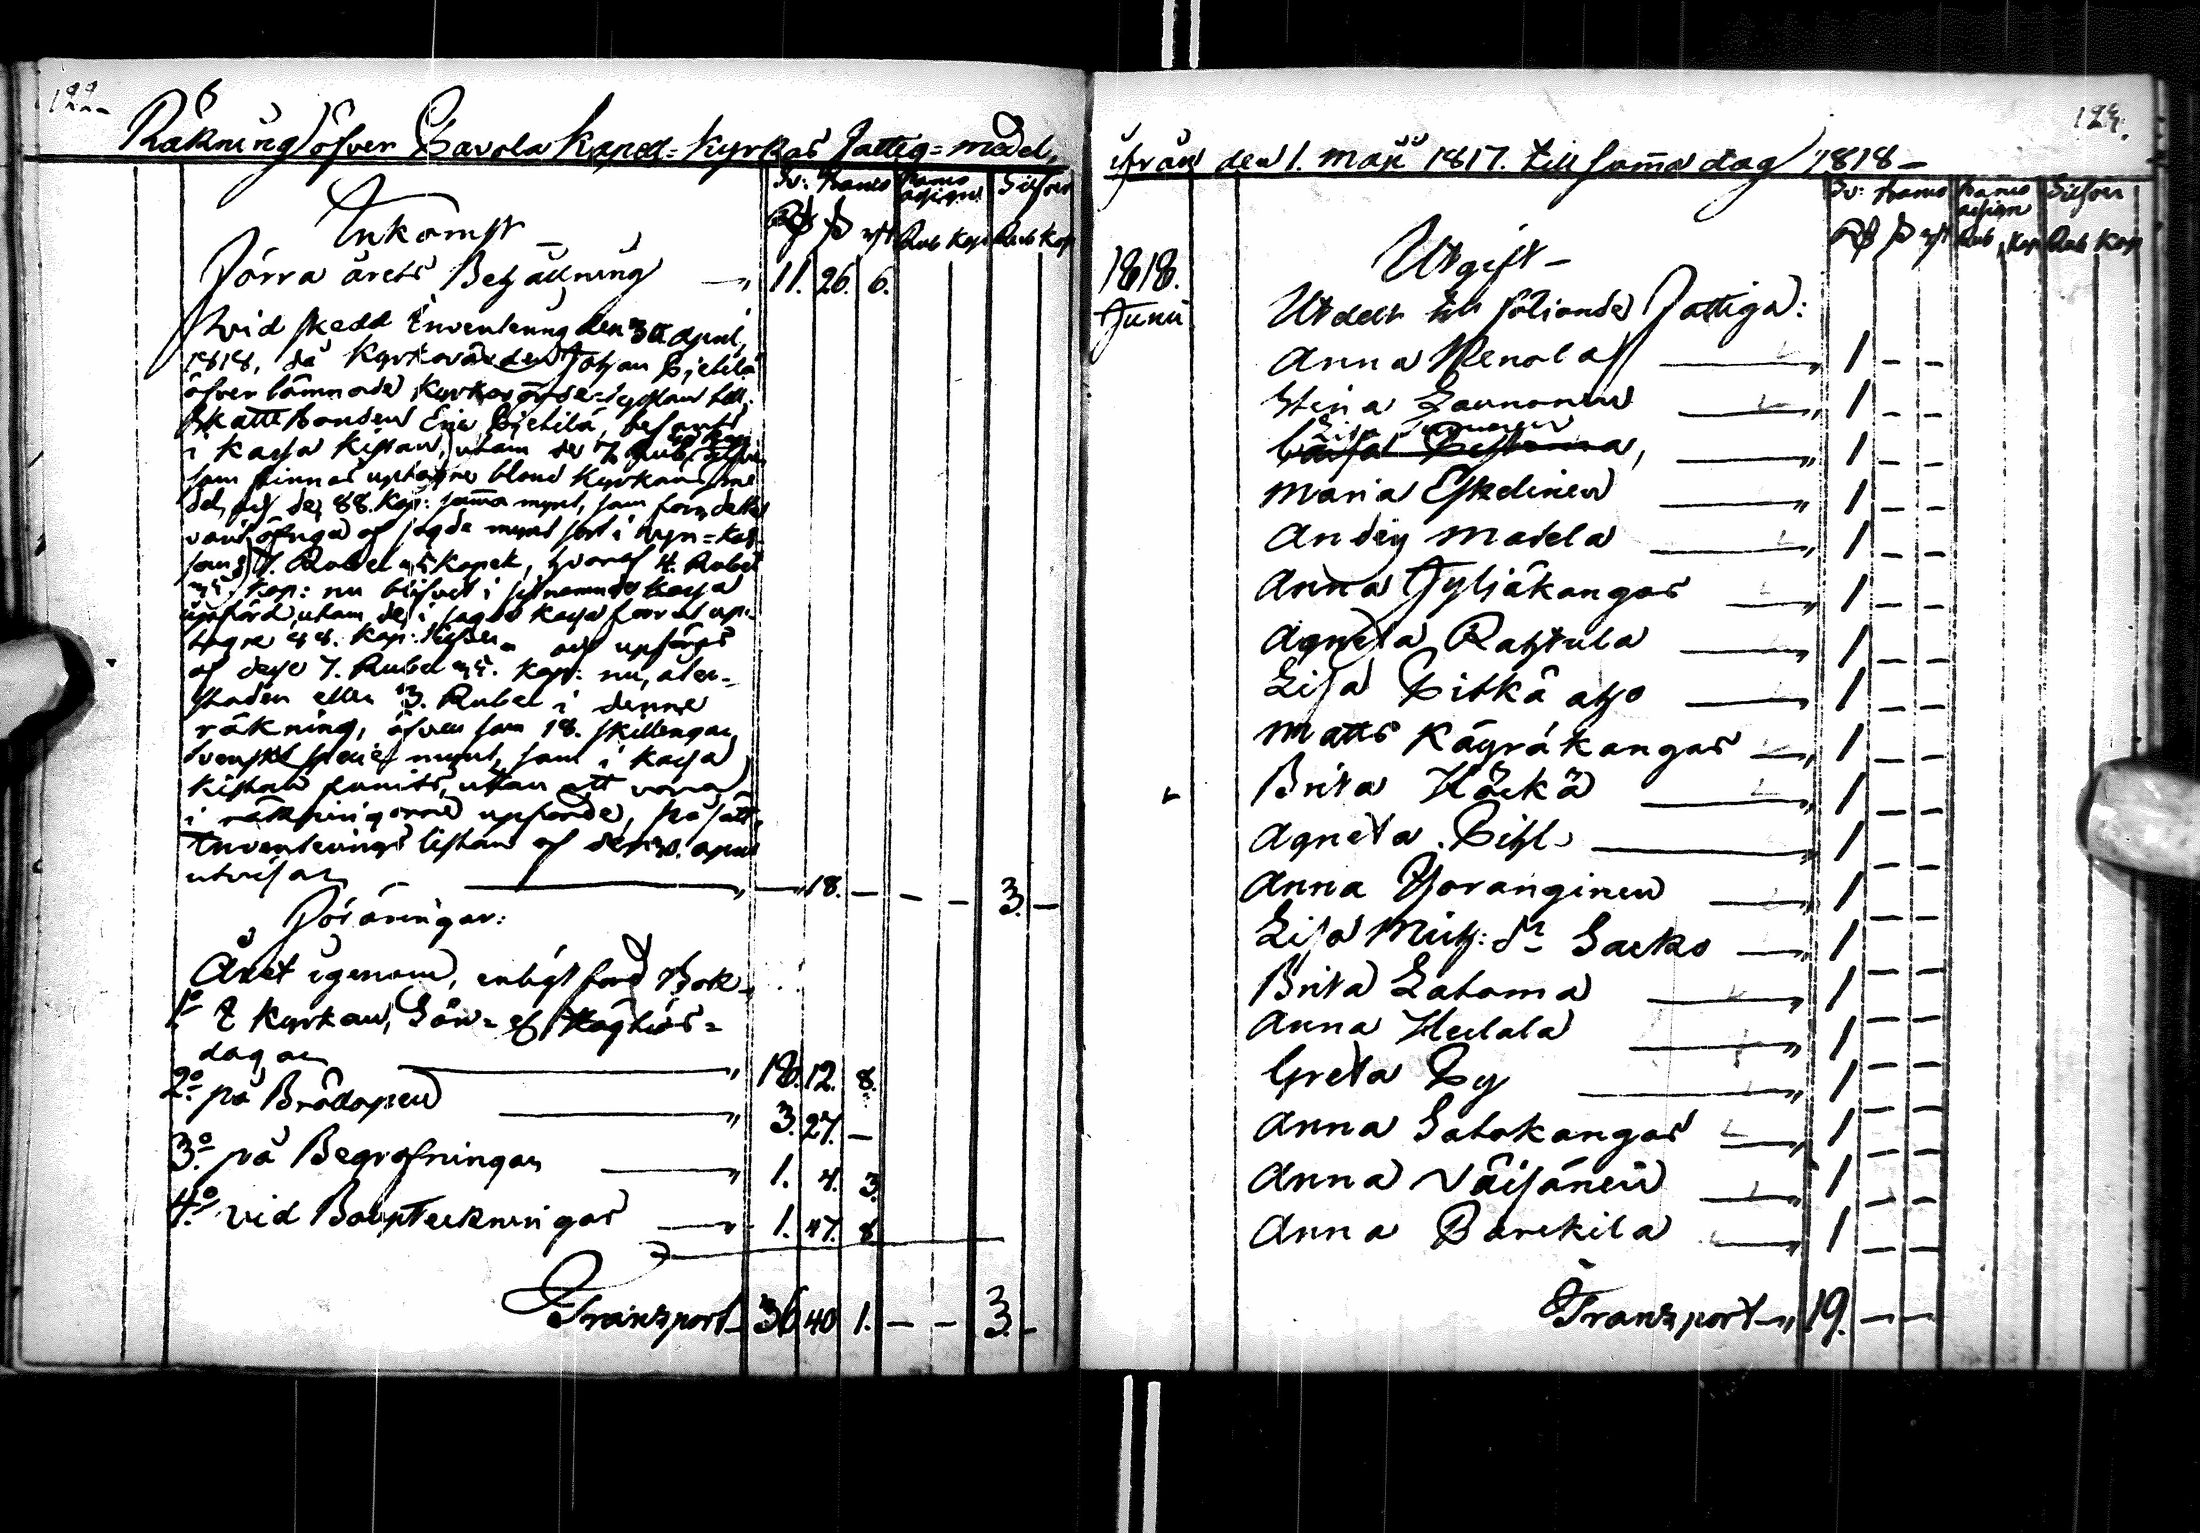 122.
Räkning öfver Pavola Kapell-Kyrkas Fattig-medel,
Sv: Banco Banco assign. Silfver
Rd ß rst Rub Kop Rub Kop
Inkomst
Förra årets Behållning 11. 26. 6.
Wid skedd Inventering den 30 April,
1818, då Kyrkovärden Johan Pietilä
öfverlämnade Kyrkovärde-sysslan till
Skattebonden Eric Pietilä, befants
i Kassa Kistan, utom de 7 Rub.
som finnas uptagne bland Kyrkans me-
del, och de 88. Kop: samma mynt, som
af sagde mynt sort i
7. Rubel 95 Kopek, hvaraf 4. Rubel
95. Kop: nu blifvit i kassa
upförd, utom de i sagde kassa förrut up-
tagne 88. Kop: Silfver och upföres
af desse 7. Rubel 95. Kop: nu, åter-
stoden eller 3. Rubel i denne
räkning, äfven som 18. skillingar
Svenskt mynt, som i Kassa
Kistan funnits, utan att vara
i räkningarne upförde, på sätt
Inventerings listan af den 30. April
utvisar — 18. — — — 3. —
Föräringar:
Året igenom, enligt ford Bok
1o I Kyrkan, Sön- och Högtids-
dagar 18. 12. 8.
2o på Brödopen 3. 27. —
3o på Begrafningar 1. 4. 3.
4o vid Bouptekningar 1. 47. 8.
Transport 36 40 1. — — 3. —
123.
ifrån den 1. Maii 1817. till samma dag 1818 —
Sv: Banco Banco assign Silfver
Rd ß rst Rub Kop Rub Kop
1818. Utgift —
Junii Utdelt till följande Fattiga:
Anna Nenola 1 — —
Stina Launonen 1 — —
Lisa 1 — —
Maria Eskelinen 1 — —
Andeij Matela 1 — —
Anna Jyljäkangas 1 — —
Agneta Rahtula 1 — —
Lisa Pitkä aho 1 — —
Matts Käyräkangas 1 — —
Brita Höckä 1 — —
Agneta Pihl 1 — —
Anna Horanginen 1 — —
Lisa Mich: dr Sarko 1 — —
Brita Latoma 1 — —
Anna Heilala 1 — —
Greta Py 1 — —
Anna Salokangas 1 — —
Anna Väisänen 1 — —
Anna Parckila 1 — —
Transport 19. — —